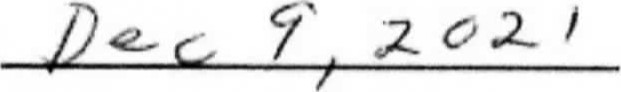 Dec 9, 2021